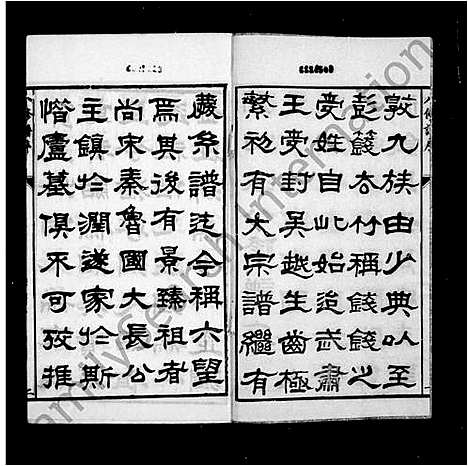 敦九族由少典以至
彭籛古竹稱錢錢之
受姓自此始迨武肅
王受封吳越生齒極
繁初有大宗譜繼有
葴系譜迄今稱六望
焉其後有景臻祖者
尚宋秦魯國大長公
主鎮於潤遂家於斯
惜廬墓俱不可攷推
FamilySearch International